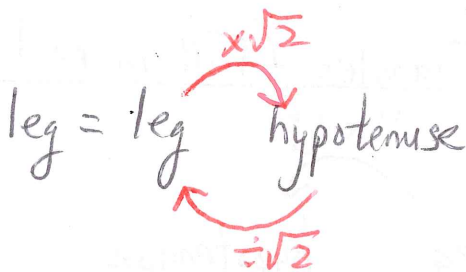 ×√2
leg = leg hypotenuse
÷√2